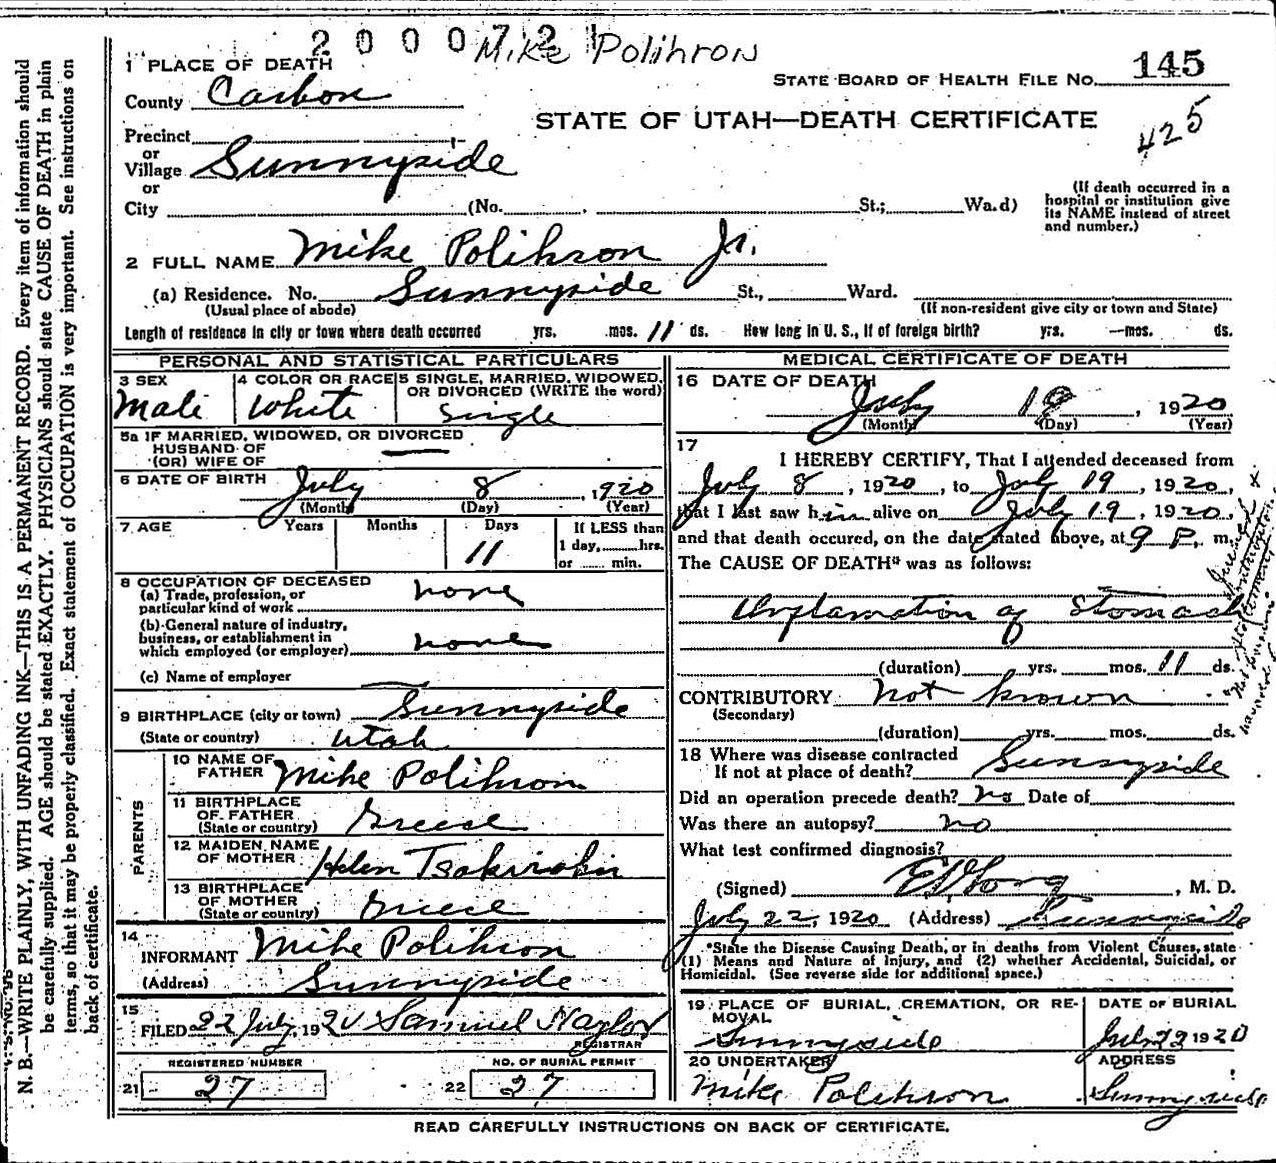 2000721 Mike Polihron
1 PLACE OF DEATH
STATE BOARD OF HEALTH FILE NO. 145
County Carbon
STATE OF UTAH—DEATH CERTIFICATE
425
Precinct
or
Village Sunnyside
or
City (No. St.; Wa.d)
(If death occurred in a
hospital or institution give
its NAME instead of street
and number.)
2 FULL NAME Mike Polihron Jr.
(a) Residence. No. Sunnyside St., Ward.
(Usual place of abode) (If non-resident give city or town and State)
Length of residence in city or town where death occurred yrs. mos. 11 ds. How long in U. S., if of foreign birth? yrs. mos. ds.
PERSONAL AND STATISTICAL PARTICULARS
3 SEX 4 COLOR OR RACE 5 SINGLE, MARRIED, WIDOWED,
OR DIVORCED (WRITE the word)
Male White Single
5a IF MARRIED, WIDOWED, OR DIVORCED
HUSBAND OF
(OR) WIFE OF
6 DATE OF BIRTH July 8, 1920
(Month) (Day) (Year)
7 AGE Years Months Days If LESS than
11 1 day, hrs.
or min.
8 OCCUPATION OF DECEASED
(a) Trade, profession, or
particular kind of work none
(b) General nature of industry,
business, or establishment in
which employed (or employer) none
(c) Name of employer
9 BIRTHPLACE (city or town) Sunnyside
(State or country) Utah
PARENTS
10 NAME OF
FATHER Mike Polihron
11 BIRTHPLACE
OF FATHER
(State or country) Greece
12 MAIDEN NAME
OF MOTHER Helen
13 BIRTHPLACE
OF MOTHER
(State or country) Greece
14
INFORMANT Mike Polihron
(Address) Sunnyside
15
FILED 22 July, 1920 Samuel Naylor
REGISTRAR
REGISTERED NUMBER NO. OF BURIAL PERMIT
21 27 22 27
MEDICAL CERTIFICATE OF DEATH
16 DATE OF DEATH
July 19, 1920
(Month) (Day) (Year)
17
I HEREBY CERTIFY, That I attended deceased from
July 8, 1920, to July 19, 1920,
that I last saw him alive on July 19, 1920,
and that death occured, on the date stated above, at 9 P. m,
The CAUSE OF DEATH* was as follows:
Inflamation of Stomach
(duration) yrs. mos. 11 ds.
CONTRIBUTORY not known
(Secondary)
(duration) yrs. mos. ds.
18 Where was disease contracted
If not at place of death? Sunnyside
Did an operation precede death? no Date of
Was there an autopsy? no
What test confirmed diagnosis?
(Signed) , M. D.
July 22, 1920 (Address) Sunnyside
*State the Disease Causing Death, or in deaths from Violent Causes, state
(1) Means and Nature of Injury, and (2) whether Accidental, Suicidal, or
Homicidal. (See reverse side for additional space.)
19 PLACE OF BURIAL, CREMATION, OR RE-
MOVAL
Sunnyside
DATE OF BURIAL
July 23 1920
20 UNDERTAKER
Mike Polihron
ADDRESS
Sunnyside
READ CAREFULLY INSTRUCTIONS ON BACK OF CERTIFICATE.
N. B.—WRITE PLAINLY, WITH UNFADING INK—THIS IS A PERMANENT RECORD. Every item of information should
be carefully supplied. AGE should be stated EXACTLY. PHYSICIANS should state CAUSE OF DEATH in plain
terms, so that it may be properly classified. Exact statement of OCCUPATION is very important. See instructions on
back of certificate.